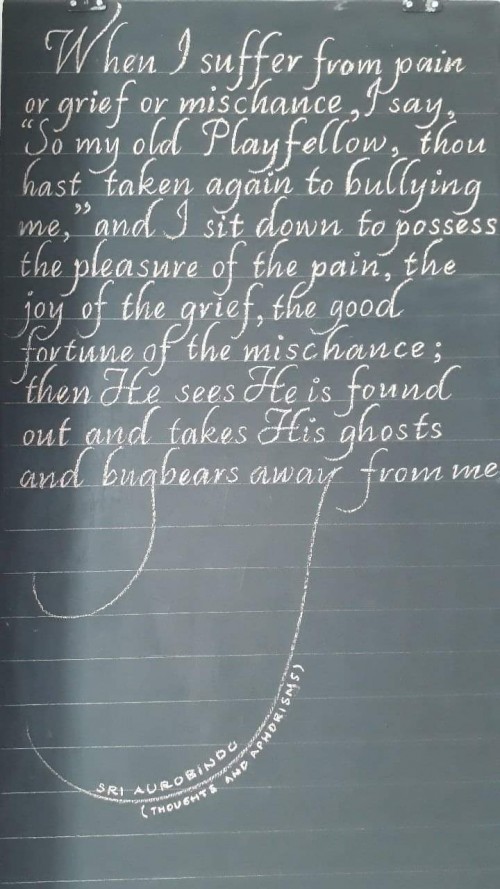 When I suffer from pain
or grief or mischance, I say,
“So my old Playfellow, thou
hast taken again to bullying
me,” and I sit down to possess
the pleasure of the pain, the
joy of the grief, the good
fortune of the mischance;
then He sees He is found
out and takes His ghosts
and bugbears away from me
SRI AUROBINDO
(THOUGHTS AND APHORISMS)